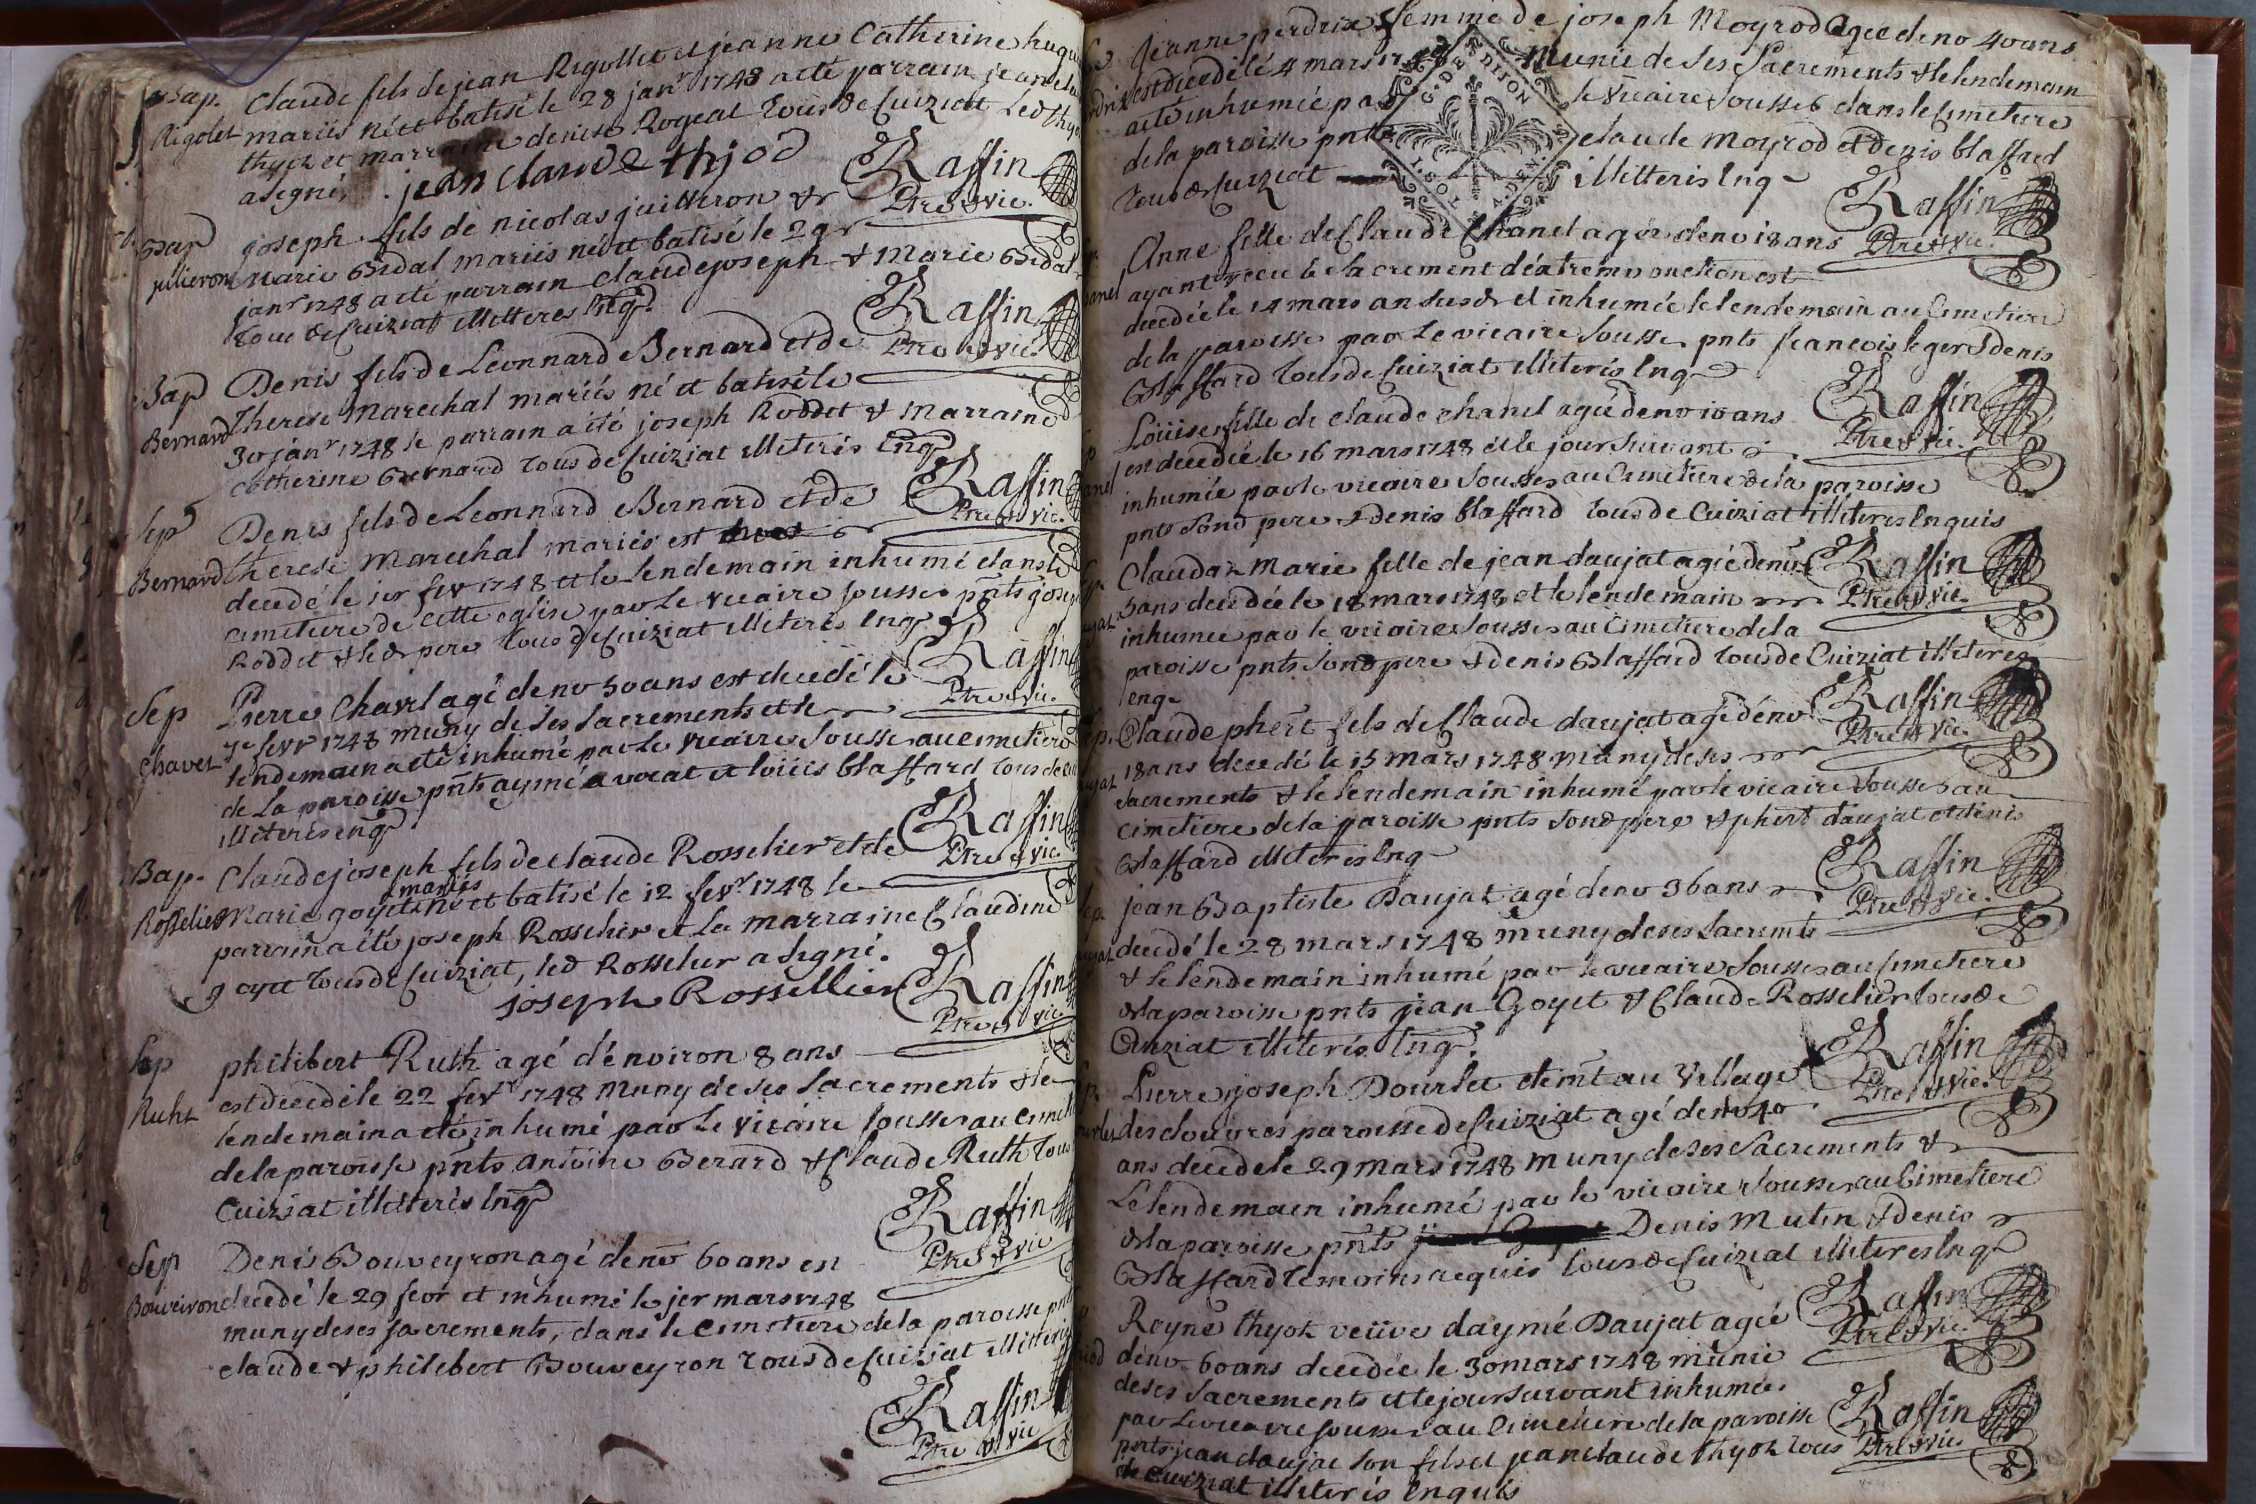 Bap. Claude fils de jean Rigollet et jeanne Catherine
Rigolet mariés né et batisé le 28 janr 1748 a eté parrain
thyot et marraine denise Rogeat tous de Cuiziat
a signé. jean claude thjod
Raffin
Ptre & vic.
Bap joseph fils de nicolas juilleron &
julieron marie Bidal mariés né et batisé le 29
janr 1748 a eté parrain claude joseph & Marie Bidal
tous de Cuiziat illitteres Inq
Raffin
Ptre & vic.
Bap Denis fils de Leonnard Bernard et de
Bernard Therese Marechal mariés né et batisé le
30 janr 1748 le parrain a été joseph Roddet & marraine
catherine Bernard tous de Cuiziat illiteris Inq
Raffin
Ptre & vic.
Sep Denis fils de Leonnard Bernard et de
Bernard therese Marechal mariés est
decedé le ier fevr 1748 et le lendemain inhumé dans le
cimetiere de cette eglise par Le vicaire sousse pnts
Roddet & led pere tous de Cuiziat illiteris Inq
Raffin
Ptre & vic.
Sep Pierre Chavet agé denv 50 ans est decedé le
fevr 1748 muny de ses sacrements et le
Chavet lendemain a eté inhumé par Le vicaire sousse au cimetiere
de La paroisse pnts aymé avocat et loüis blaffard tous de
illiteris enq
Raffin
Ptre & vic.
Bap. Claude joseph fils de claude Rosselier et de
mariés
Rosselier Marie goyet né et batisé le 12 fevr 1748 le
parrain a été joseph Rosselier et La marraine Claudine
goyet tous de Cuiziat, led Rosselier a signé.
joseph Rossellier
Raffin
Ptre & vic.
Sep philibert Ruth agé d'environ 8 ans
est decedé le 22 fevr 1748 Muny de ses Sacrements & le
Ruht lendemain a eté inhumé par Le vicaire sousse au
de la paroisse pnts antoine Berard & Claude Ruth tous
Cuiziat illitteris Inq
Raffin
Ptre & vic
Sep Denis Bouveyron agé denv 60 ans est
Bouveiron decedé le 29 fevr et inhumé le ier mars 1748
muny de ses sacrements, dans le cimetiere de la paroisse
claude & philibert Bouveyron tous de Cuiziat
Raffin
Ptre & vic
Jeanne perdrix femme de joseph Moyrod agée denv 40 ans
est decedé le 4 mars 1748 munie de ses Sacrements & le lendemain
a eté inhumée par le vicaire sousse dans le cimetiere
de la paroisse pnts claude moyrod et denis blaffard
tous de Cuiziat illitteris Inq
G. DE DISON
Raffin
Ptre & vic.
Anne fille de Claude Chanel agée denv 18 ans
ayant receu le sacrement d'extremnonction est
decedée le 14 mars an susd et inhumée le lendemain au cimetiere
de la paroisse par Le vicaire sousse pnts francois leger & denis
Blaffard tous de Cuiziat illiteris Inq
Raffin
Ptre & vic.
Loüise fille de claude chanel agée denv 10 ans
est decedée le 16 mars 1748 et le jour suivant
inhumée par le vicaire sousse au cimetiere de la paroisse
pnts sond pere & denis blaffard tous de Cuiziat illiteris Inquis
Raffin
Ptre & vic.
Claudaz Marie fille de jean daujat agée denv
5 ans decedée le 18 mars 1748 et le lendemain
inhumée par le vicaire sousse au cimetiere de la
paroisse pnts sond pere & denis Blaffard tous de Cuiziat illiteres
enq
Raffin
Ptre & vic.
Claude phert fils de Claude daujat agé denv
18 ans decedé le 15 mars 1748 muny de ses
sacrements & le lendemain inhumé par le vicaire sousse au
cimetiere de la paroisse pnts sond pere & phert daujat et denis
Blaffard illiteris Inq
Raffin
Ptre & vic.
jean Baptiste Daujat agé denv 36 ans
decedé le 28 mars 1748 muny de ses sacremts
& le lendemain inhumé par le vicaire sousse au cimetiere
de la paroisse pnts jean Goyet & Claude Rosselier tous de
Cuiziat illiteris Inq.
Raffin
Ptre & vic.
Pierre joseph Dourlet demt au Village
des douvres paroisse de Cuiziat agé denv 40
ans decedé le 29 mars 1748 muny de ses sacrements &
Le lendemain inhumé par le vicaire sousse au Cimetiere
de la paroisse pnts Denis Mutin & denis
Blaffard temoins requis tous de Cuiziat illiteres Inq
Raffin
Ptre & vic.
Reyne thyot veüve daymé Daujat agée
denv 60 ans decedée le 30 mars 1748 munie
de ses sacrements et le jour suivant inhumée
par Le vicaire sousse au Cimetiere de la paroisse
pnts jean daujat son fils et jean claude thyot tous
de Cuiziat illiteris Inquis
Raffin
Ptre & vic.